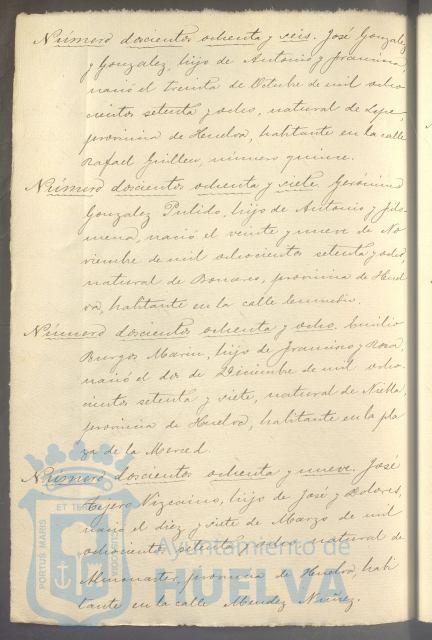 Número doscientos ochenta y seis. José Gonzalez
y Gonzalez, hijo de Antonio y Francisca,
nació el treinta de Octubre de mil ocho
cientos setenta y ocho, natural de Lepe,
provincia de Huelva, habitante en la calle
Rafael Guillen, número quince.
Número doscientos ochenta y siete. Gerónimo
Gonzalez Pulido, hijo de Antonio y Filo
mena, nació el veinte y nueve de No
viembre de mil ochocientos setenta y ocho,
natural de Bonares, provincia de Huel
va, habitante en la calle
Número doscientos ochenta y ocho. Emilio
Burgos Marin, hijo de Francisco y Rosa,
nació el dos de Diciembre de mil ocho
cientos setenta y siete, natural de Niebla,
provincia de Huelva, habitante en la pla
za de la Merced.
Número doscientos ochenta y nueve. José
Tejero Vizcaino, hijo de José y Dolores,
nació el diez y siete de Marzo de mil
ochocientos setenta y ocho, natural de
Almonaster, provincia de Huelva, habi
tante en la calle Mendez Nuñez.
PORTUS MARIS
ET TE
CUSTODIA
Ayuntamiento de
HUELVA